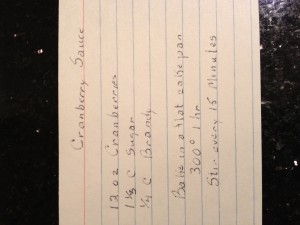 Cranberry Sauce
12 oz Cranberries
1 1/2 C Sugar
1/4 C Brandy
Bake in a flat cake pan
300° 1 hr
Stir every 15 Minutes